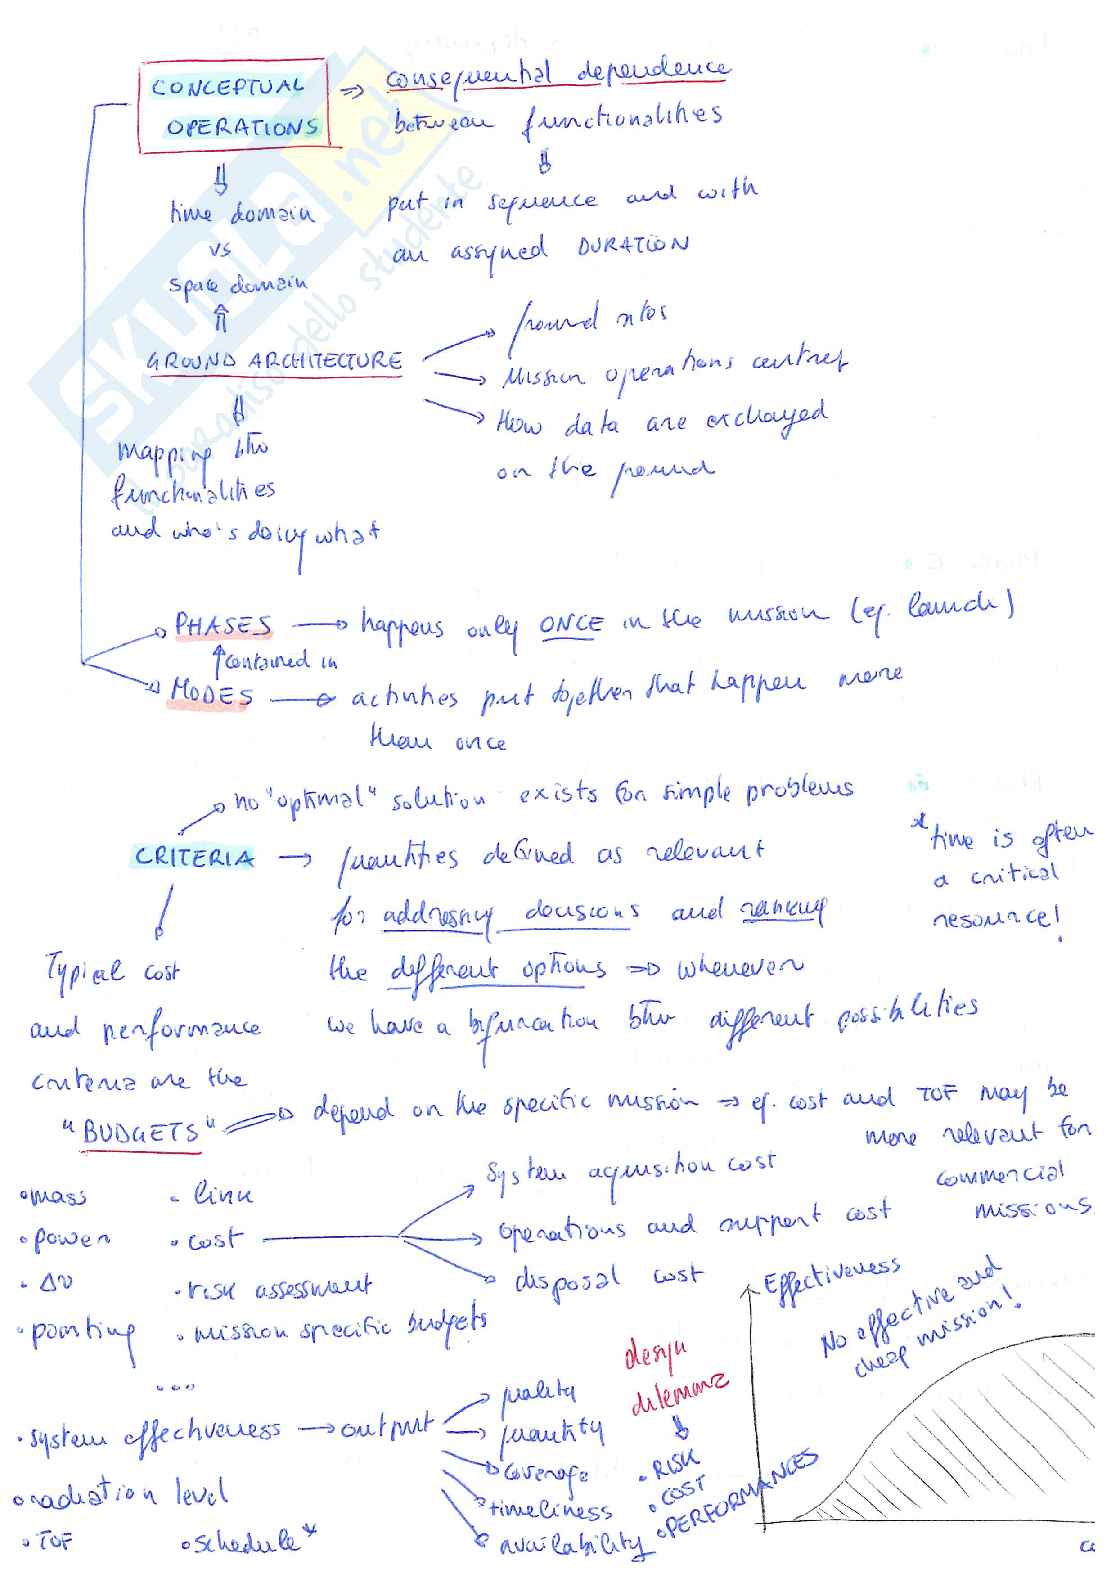 CONCEPTUAL
OPERATIONS
⇒ consequential dependence
between functionalities
⇓
put in sequence and with
an assyned DURATION
⇓
time domain
vs
space domain
⇑
GROUND ARCHITECTURE
→ ground sites
→ Mission operations centres
→ How data are exchanged
on the ground
⇓
mapping btw
functionalities
and who's doing what
→ PHASES → happens only ONCE in the mission (eg. launch)
↑ contained in
→ MODES → activities put together that happen more
than once
→ no "optimal" solution exists for simple problems
CRITERIA → quantities defined as relevant
for addressing decisions and ranking
the different options ⇒ whenever
we have a bifurcation btw different possibilities
* time is often
a critical
resource!
Typical cost
and performance
criteria are the
"BUDGETS" ⇒ depend on the specific mission ⇒ eg. cost and TOF may be
more relevant for
commercial
missions
• mass
• power
• Δv
• pointing
• link
• cost
→ System acquisition cost
→ operations and support cost
→ disposal cost
• risk assessment
• mission specific budgets
...
• system effectiveness → output
→ quality
→ quantity
→ coverage
→ timeliness
→ availability
• radiation level
• TOF
• schedule *
design
dilemma
⇓
• RISK
• COST
• PERFORMANCES
Effectiveness
No effective and
cheap mission!
SKUOLA.net
il paradiso dello studente